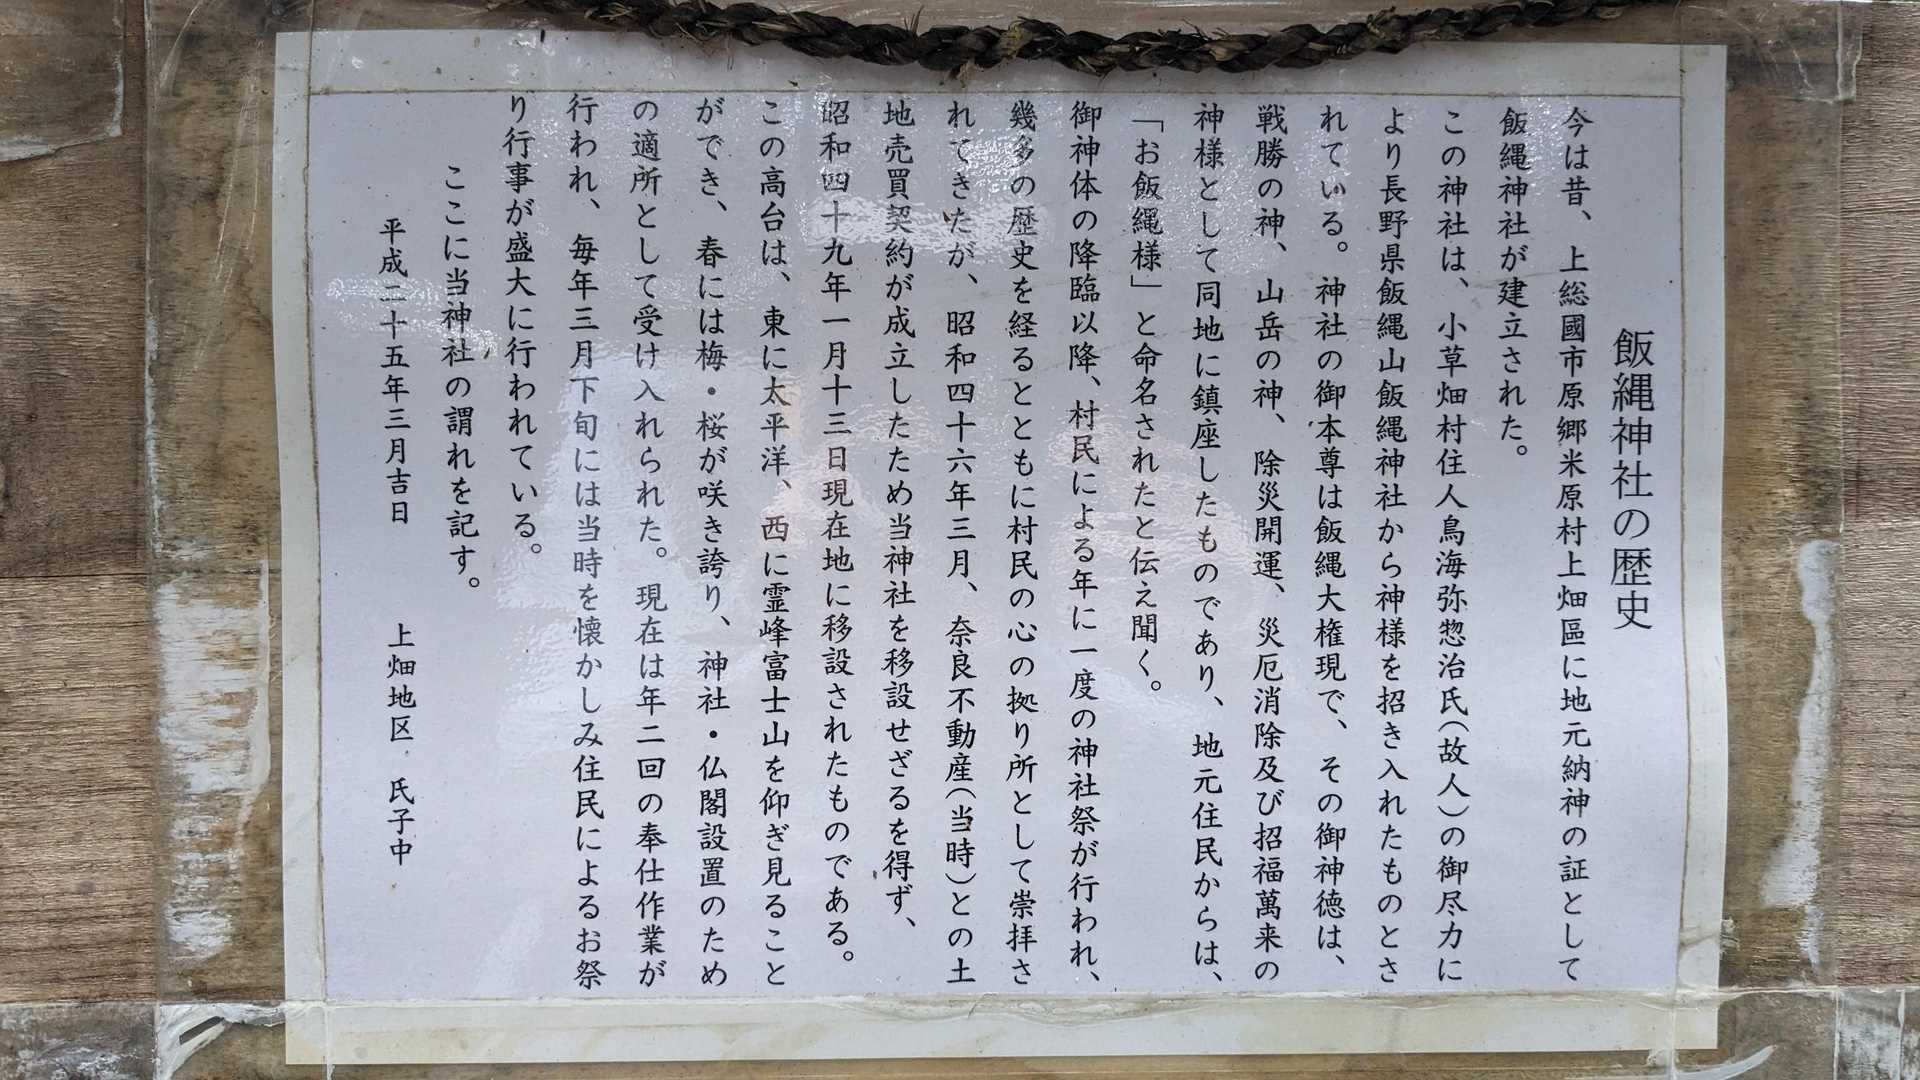 飯縄神社の歴史
今は昔、上総國市原郷米原村上畑區に地元納神の証として
飯縄神社が建立された。
この神社は、小草畑村住人鳥海弥惣治氏（故人）の御尽力に
より長野県飯縄山飯縄神社から神様を招き入れたものとさ
れている。神社の御本尊は飯縄大権現で、その御神徳は、
戦勝の神、山岳の神、除災開運、災厄消除及び招福萬来の
神様として同地に鎮座したものであり、地元住民からは、
「お飯縄様」と命名されたと伝え聞く。
御神体の降臨以降、村民による年に一度の神社祭が行われ、
幾多の歴史を経るとともに村民の心の拠り所として崇拝さ
れてきたが、昭和四十六年三月、奈良不動産（当時）との土
地売買契約が成立したため当神社を移設せざるを得ず、
昭和四十九年一月十三日現在地に移設されたものである。
この高台は、東に太平洋、西に霊峰富士山を仰ぎ見ること
ができ、春には梅・桜が咲き誇り、神社・仏閣設置のため
の適所として受け入れられた。現在は年二回の奉仕作業が
行われ、毎年三月下旬には当時を懐かしみ住民によるお祭
り行事が盛大に行われている。
ここに当神社の謂れを記す。
平成二十五年三月吉日　上畑地区　氏子中